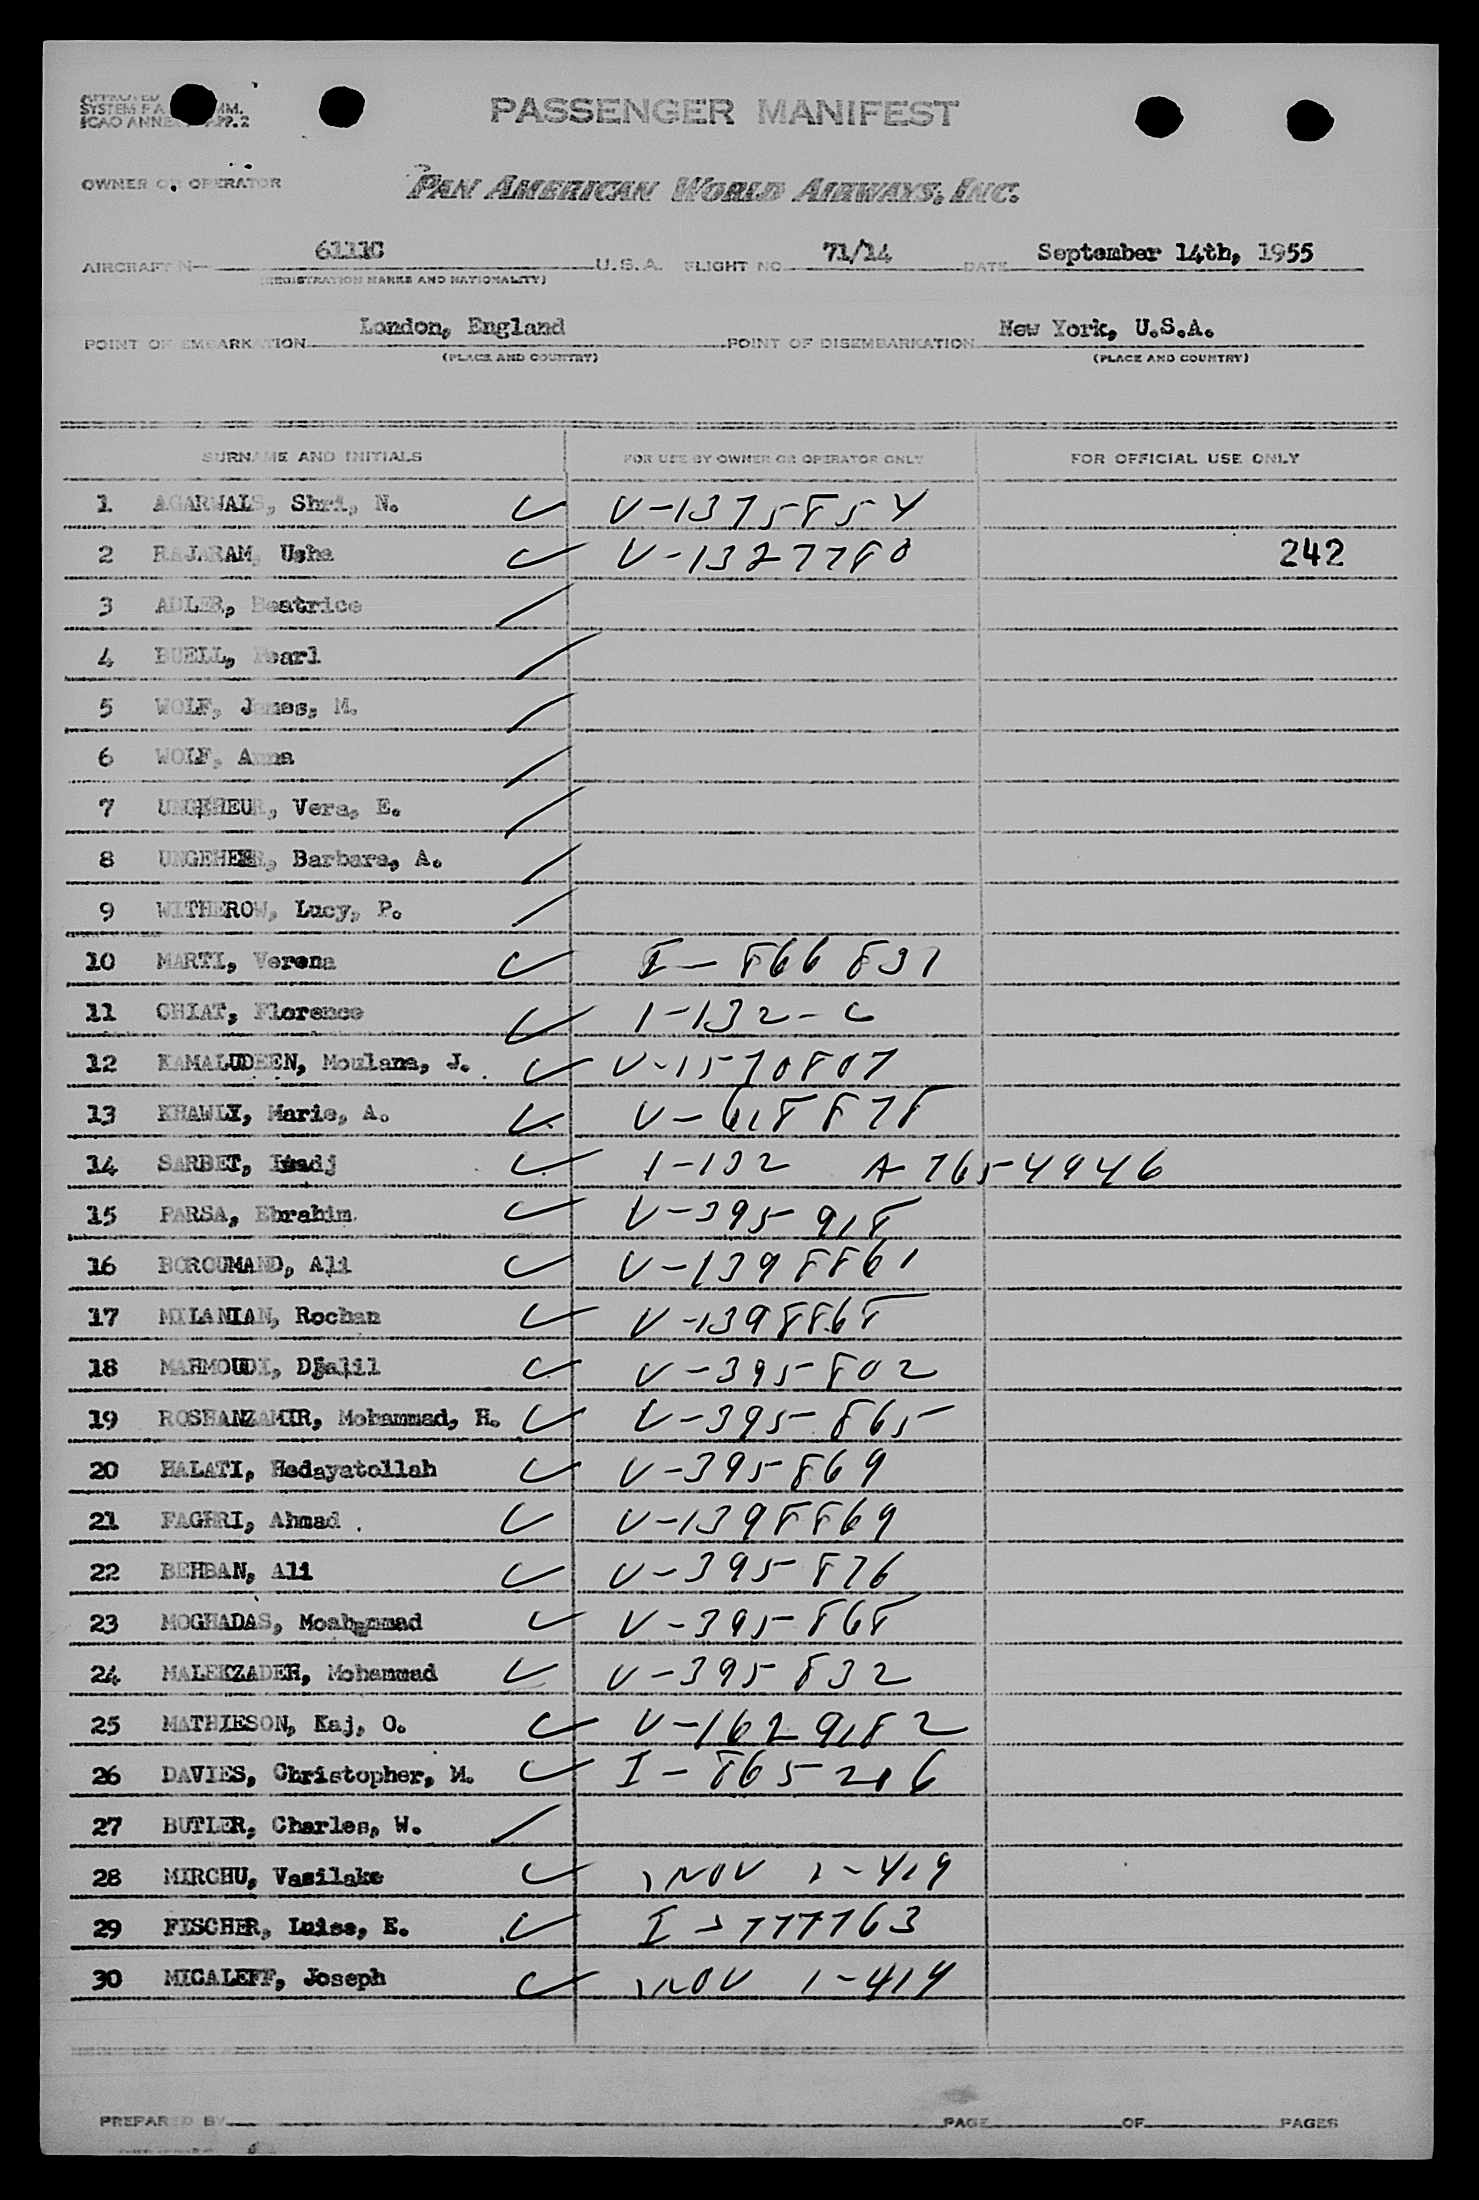 APPROVED
SYSTEM F.A. MM.
ICAO ANNE APP.2
PASSENGER MANIFEST
OWNER OR OPERATOR PAN AMERICAN WORLD AIRWAYS, INC.
AIRCRAFT N— 6111C U.S.A. FLIGHT NO. 71/14 DATE September 14th, 1955
(REGISTRATION MARKS AND NATIONALITY)
POINT OF EMBARKATION London, England POINT OF DISEMBARKATION New York, U.S.A.
(PLACE AND COUNTRY) (PLACE AND COUNTRY)
SURNAME AND INITIALS FOR USE BY OWNER OR OPERATOR ONLY FOR OFFICIAL USE ONLY
1 AGARWALS, Shri, N. ✓ V-1375854
2 RAJARAM, Usha ✓ V-1327780 242
3 ADLER, Beatrice /
4 BUELL, Pearl /
5 WOLF, James, M. /
6 WOLF, Anna /
7 UNGEHEUR, Vera, E. /
8 UNGEHEER, Barbara, A. /
9 WITHEROW, Lucy, P. /
10 MARTI, Verena ✓ I-866831
11 CHIAT, Florence ✓ I-132-C
12 KAMALUDEEN, Moulana, J. ✓ V-1570807
13 KHAWLY, Marie, A. ✓ V-618878
14 SARBET, Imadj ✓ I-132 A-7654946
15 PARSA, Ebrahim ✓ V-395918
16 BOROUMAND, Ali ✓ V-1398861
17 MILANIAN, Rochan ✓ V-1398868
18 MAHMOUDI, Djalil ✓ V-395802
19 ROSHANZAMIR, Mohammad, H. ✓ V-395865
20 HALATI, Hedayatollah ✓ V-395869
21 FAGHRI, Ahmad ✓ V-1398869
22 BEHBAN, Ali ✓ V-395876
23 MOGHADAS, Moahammad ✓ V-395868
24 MALEKZADEH, Mohammad ✓ V-395832
25 MATHIESON, Kaj, O. ✓ V-1629182
26 DAVIES, Christopher, M. ✓ I-865206
27 BUTLER, Charles, W. /
28 MIRCHU, Vasilake ✓ INOV 1-419
29 FISCHER, Luise, E. ✓ I-777763
30 MICALEFF, Joseph ✓ INOV 1-419
PREPARED BY PAGE OF PAGES